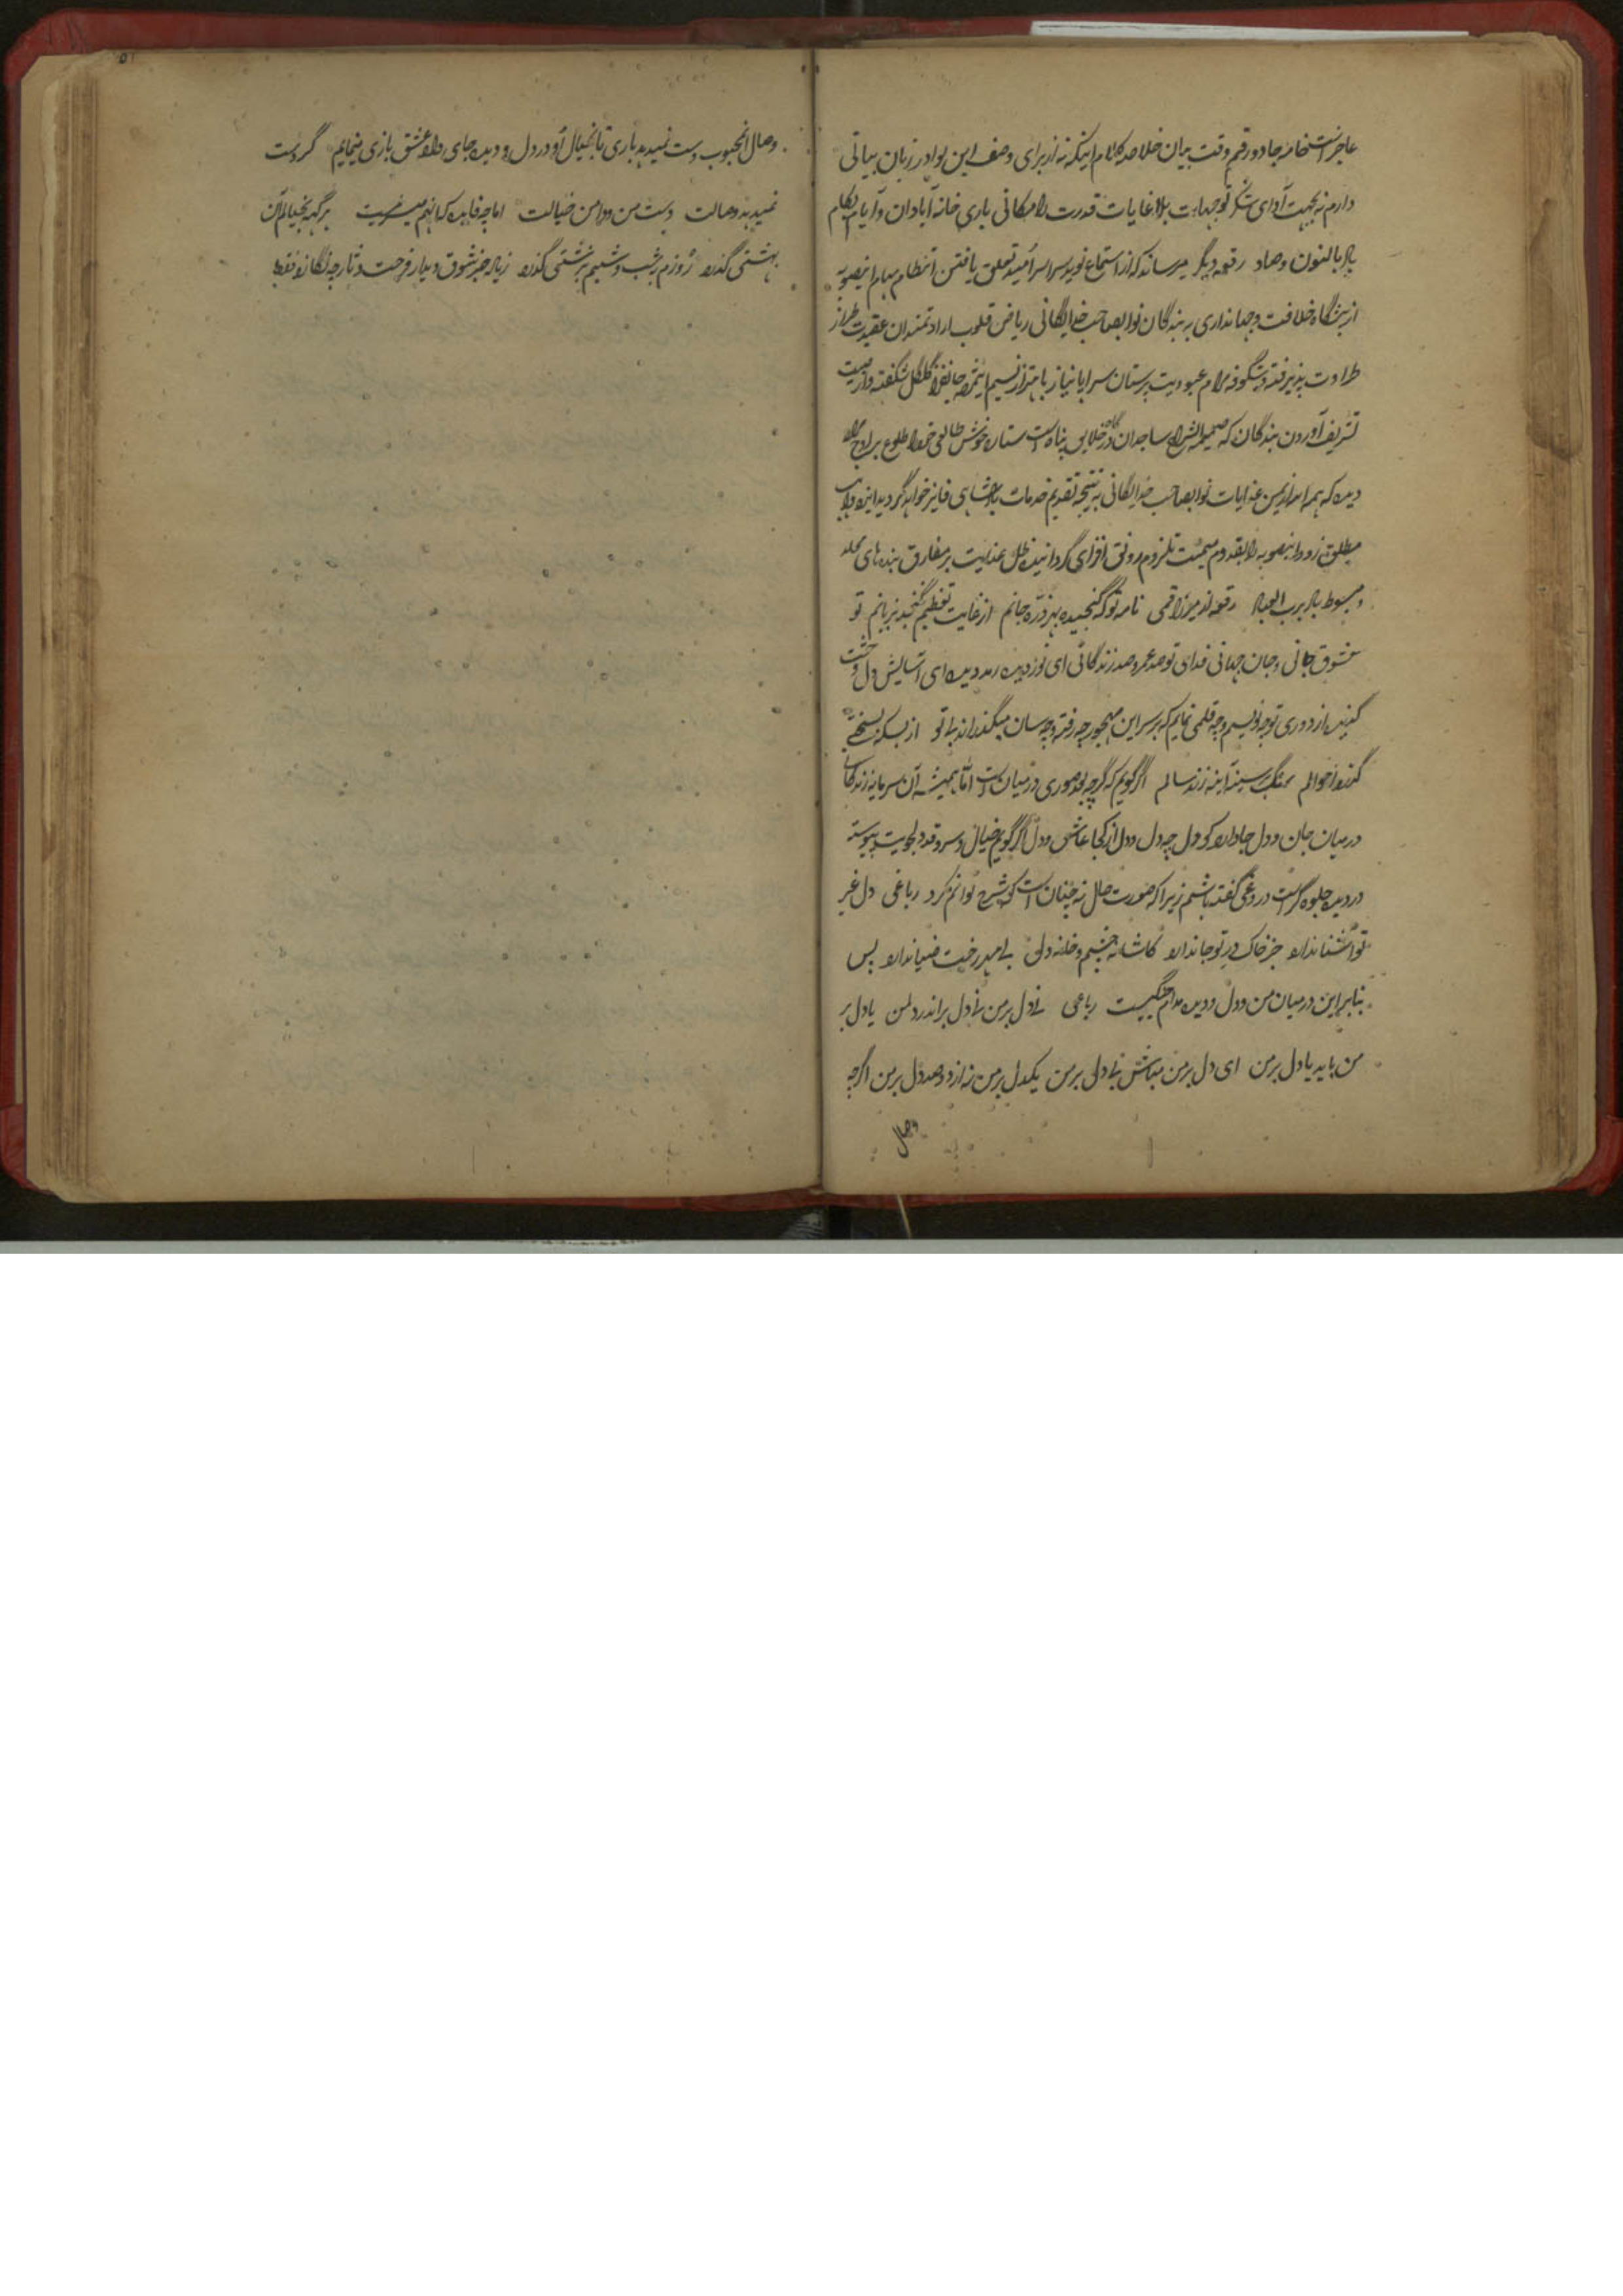 عاجز است خامه جادو رقم وقت بیان خلاصه کلام اینکه نه از برای وصف این نوادر زبان بیانی
دارم نه بجهت آدای شکر توجهات بلا غایات قدرت و امکانی باری خانه آبادان و ایام بکام
باد بالنون وصاد رقعه دیگر میرساند که از استماع نوید سراسر امید تعلق یافتن انتظام مهام اینصوبه
از پیشگاه خلافت و جهانداری به بندگان نوابصاحب خدایگانی ریاض قلوب ارادتمندان عقیدت طراز
طراوت پذیرفته و شگوفه مرام عبودیت پرستان سراپا نیاز باهتزاز نسیم اینمژده جانفزا گلگل شگفته و از
تشریف آوردن بندگان که ساجدان درگاه خلایق پناه است ستاره خوش طالعی خود را طلوع بر اوج
دیده که همه از یمن عنایات نوابصاحب خدایگانی به نتیجه تقدیم خدمات بادشاهی فایز خواهد گردید ایزد واهب
مطلق زود اینصوبه را بقدوم میمنت لزوم رونق افزای گردانیده ظل عنایت بر مفارق بنده های
و مبسوط باد برب العباد رقعه از میرزا قمی نامه تو که گنجیده بهر ذره جانم از غایت تعظیم نگنجد بزبانم تو
معشوق جانی و جان جهانی فدای تو صد عمر و صد زندگانی ای نور دیده رمد دیده ای آسایش دل
کنیده از دوری تو چه نویسم و چه قلمی نمایم که بر سر این مهجور چه رفته و چه سان میگذراند بی تو از بسکه بسختی
گذرد احوالم سنگ سینه آینه زند سالم اگر گویم که گرچه بعد صوری در میان است اما همیشه آن سرمایه زندگانی
در میان جان و دل جا دارد کو دل چه دل و دل از کجا عاشقی و دل اگر گویم خیال و سرو قد دلجویت پیوسته
در دیده جلوه گر است دروغی گفته باشم زیرا که صورت حال نه چنان است که شرح توانم کرد رباعی دل غیر
تو آشنا ندارد جز خاک در تو جا ندارد کاشانه چشم و خانه دل بی مهر رخت ضیا ندارد پس
بنابر این در میان من و دل و دیده مدام جنگیست رباعی نے دل بر من نے دل بر اندر دلمن یا دل بر
من باید یا دل بر من ای دل بر من مباش بی دلی بر من یکدل بر من نه از دو صد دل بر من اگرچه
وصال
وصال آنمحبوب دست نمیدهد باری تا بخیال او در دل و دیده جای داده عشق بازی مینمایم گر دست
نمیدهد وصالت دست من و دامن خیالت اما چه فایده که آنهم میسر نیست هر گه بخیالم آن
بهشتی گذرد روزم به شب و شبم بزشتی گذرد زیاده جز شوق دیدار فرحت دثار چه نگارد فقط